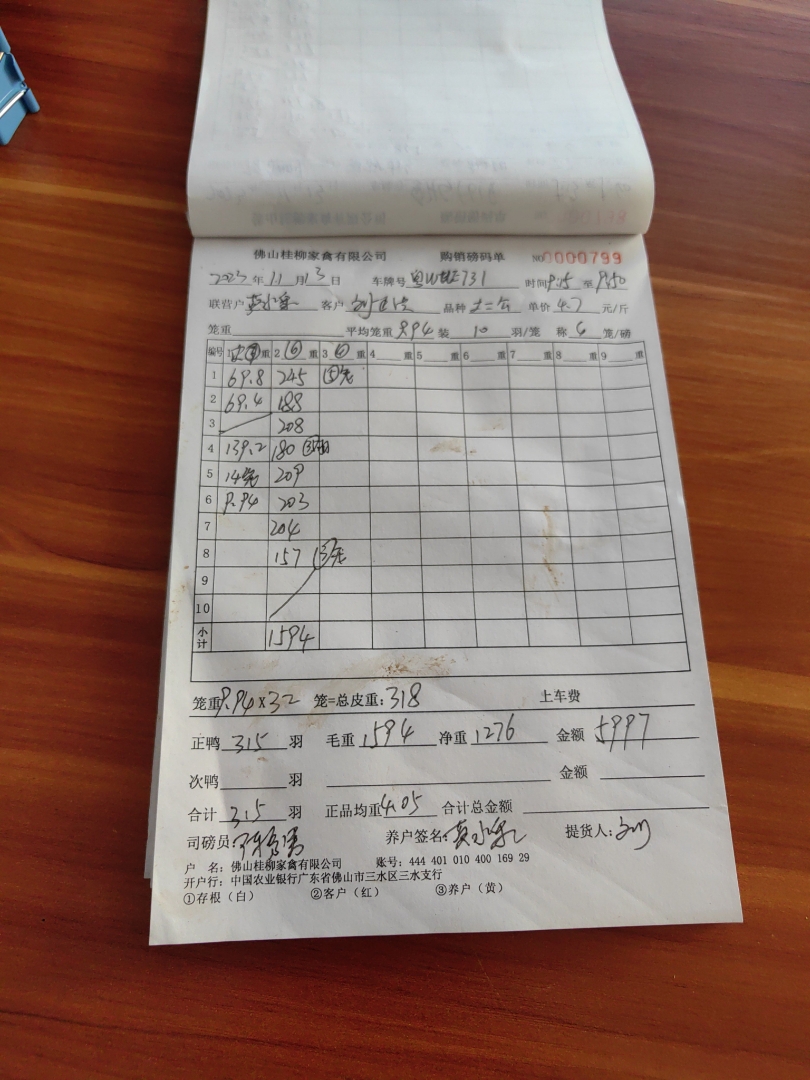 佛山桂柳家禽有限公司 购销磅码单 NO 0000799
2023年11月13日 车牌号 粤 731 时间9:15至9:50
联营户 客户 品种 土二 单价4.7元/斤
笼重 平均笼重9.94装10羽/笼 称6笼/磅
编号 1 重 2 ⑥ 重 3 ⑥ 重 4 重 5 重 6 重 7 重 8 重 9 重
1 69.8 245 ⑤
2 69.4 188
3 208
4 139.2 180
5 14 209
6 9.94 203
7 204
8 157
9
10
小计 1594
笼重9.94×32 笼=总皮重:318 上车费
正鸭315羽 毛重1594 净重1276 金额5997
次鸭 羽 金额
合计315羽 正品均重4.05 合计总金额
司磅员: 养户签名: 提货人:刘
户 名:佛山桂柳家禽有限公司 账号:444 401 010 400 169 29
开户行:中国农业银行广东省佛山市三水区三水支行
①存根(白) ②客户(红) ③养户(黄)